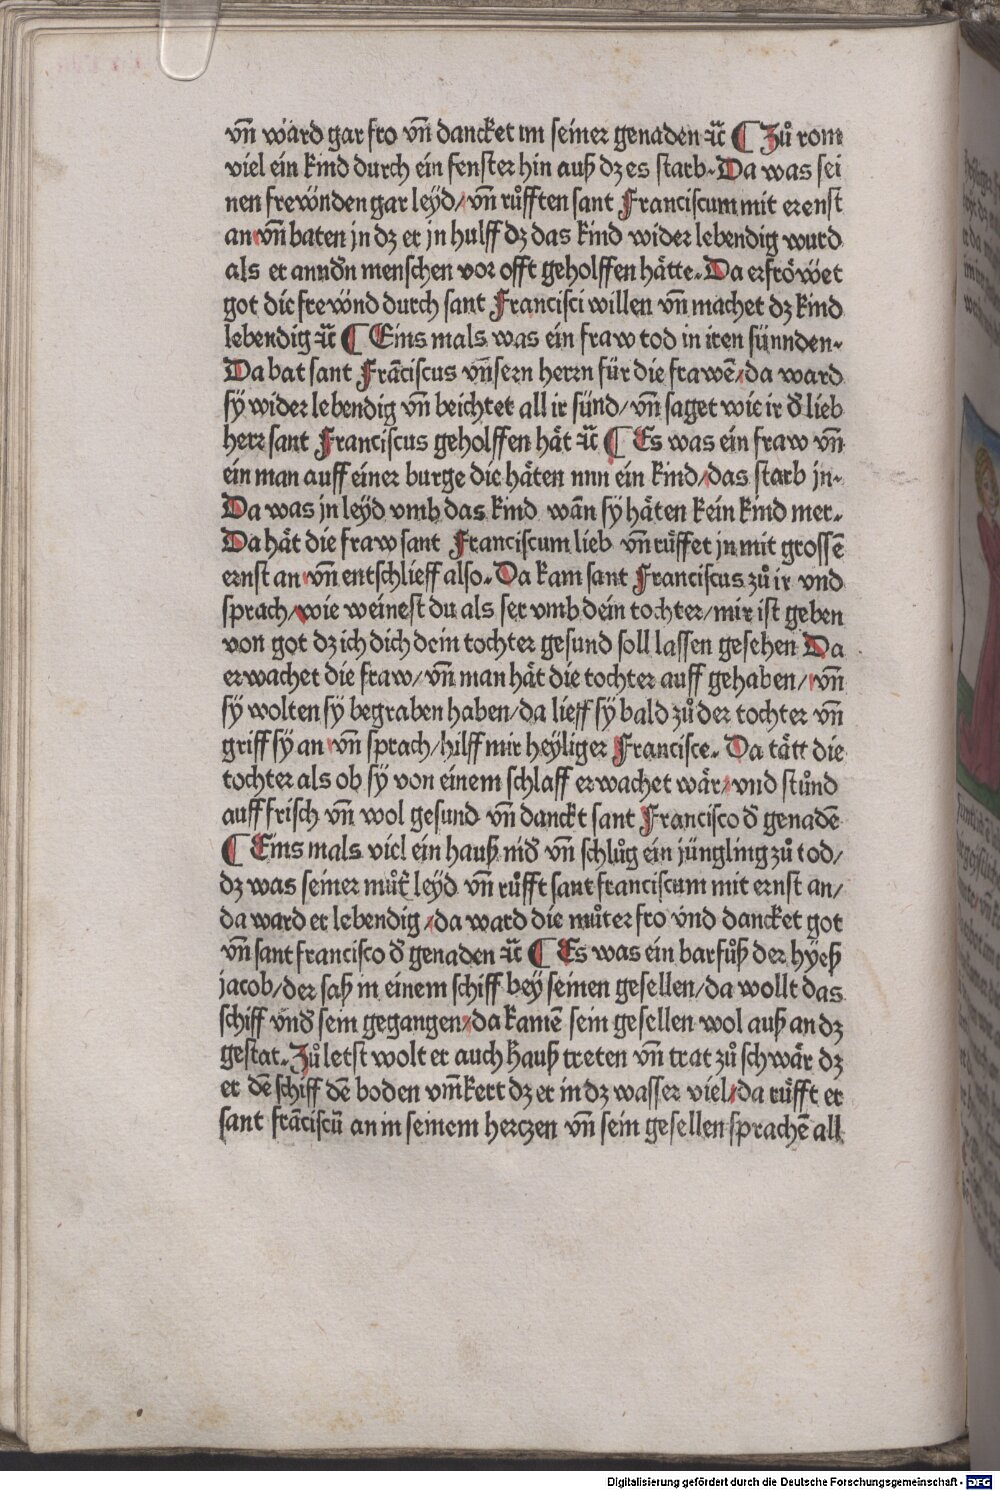 vn̄ ward gar fro vn̄ dancket im seiner genaden ⁊c̄ ¶ Zů rom
viel ein kind durch ein fenster hin auß dz es starb. Da was sei
nen frewnden gar leyd/ vn̄ růfften sant Franciscum mit ernst
an vn̄ baten jn dz er jn hulff dz das kind wider lebendig wurd
als er anndn menschen vor offt geholffen hätte. Da erfröwet
got die frewnd durch sant Francisci willen vn̄ machet dz kind
lebendig ⁊c̄ ¶ Eins mals was ein fraw tod in iren sünnden.
Da bat sant Frāciscus vn̄sern herrn für die frawē/ da ward
sy wider lebendig vn̄ beichtet all ir sünd/ vn̄ saget wie ir d̄ lieb
herr sant Franciscus geholffen hät ⁊c̄ ¶ Es was ein fraw vn̄
ein man auff einer burge die häten nun ein kind/ das starb jn.
Da was jn leyd vmb das kind wān sy häten kein kind mer.
Da hät die fraw sant Franciscum lieb vn̄ rüffet jn mit grossē
ernst an vn̄ entschlieff also. Da kam sant Franciscus zů ir vnd
sprach/ wie weinest du als ser vmb dein tochter/ mir ist geben
von got dz ich dich dein tochter gesund soll lassen gesehen Da
erwachet die fraw/ vn̄ man hät die tochter auff gehaben/ vn̄
sy wolten sy begraben haben/ da lieff sy bald zů der tochter vn̄
griff sy an vn̄ sprach/ hilff mir heyliger Francisce. Da tätt die
tochter als ob sy von einem schlaff erwachet wär/ vnd stůnd
auff frisch vn̄ wol gesund vn̄ danckt sant Francisco d̄ genadē
¶ Eins mals viel ein hauß nid̄ vn̄ schlůg ein jüngling zů tod/
dz was seiner můt̄ leyd vn̄ růfft sant franciscum mit ernst an/
da ward er lebendig/ da ward die můter fro vnd dancket got
vn̄ sant francisco d̄ genaden ⁊c̄ ¶ Es was ein barfůß der hyeß
jacob/ der saß in einem schiff bey seinen gesellen/ da wollt das
schiff vnd̄ sein gegangen/ da kamē sein gesellen wol auß an dz
gestat. Zů letst wolt er auch hauß treten vn̄ trat zů schwär dz
er dē schiff dē boden vm̄kert dz er in dz wasser viel/ da rüfft er
sant frāciscū an in seinem herczen vn̄ sein gesellen sprachē all
Digitalisierung gefördert durch die Deutsche Forschungsgemeinschaft - DFG